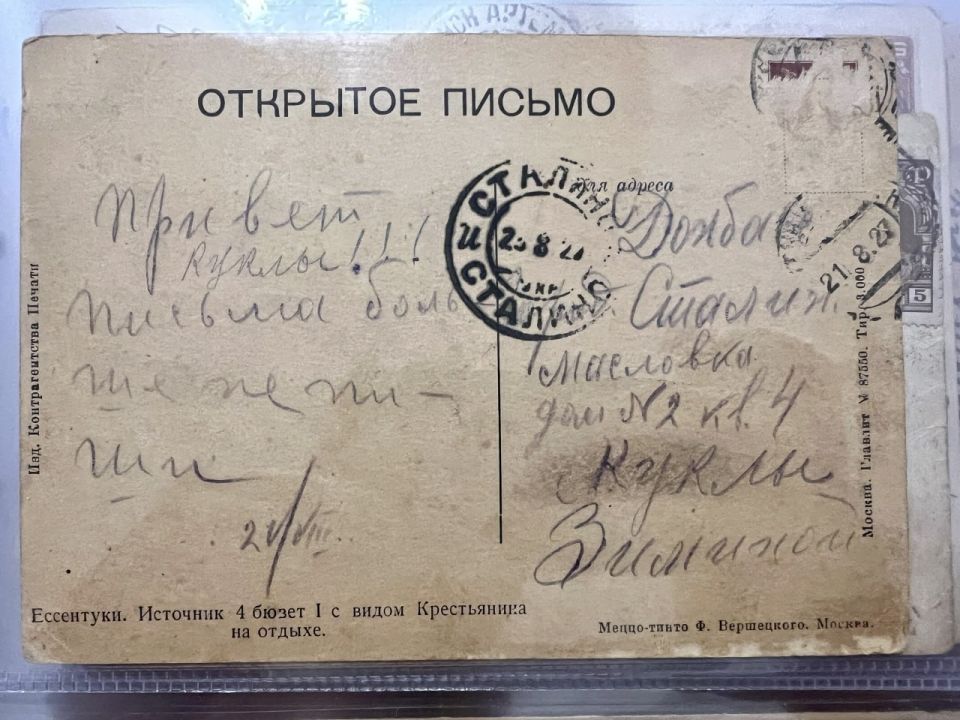 ОТКРЫТОЕ ПИСЬМО
для адреса
Привет
куклы!!!
Письма боль
ше не пи-
ши
21/VIII
СТАЛИНО
И 23 8 27
СТАЛИНО
21.8.27
Донба
Сталин
Масловка
дом №2 кв. 4
Куклы
Зиминой
Изд. Контрагентства Печати
Москва. Главлит № 87550. Тир. 3.000
Ессентуки. Источник 4 бювет I с видом Крестьянина
на отдыхе.
Меццо-тинто Ф. Вершецкого. Москва.
5